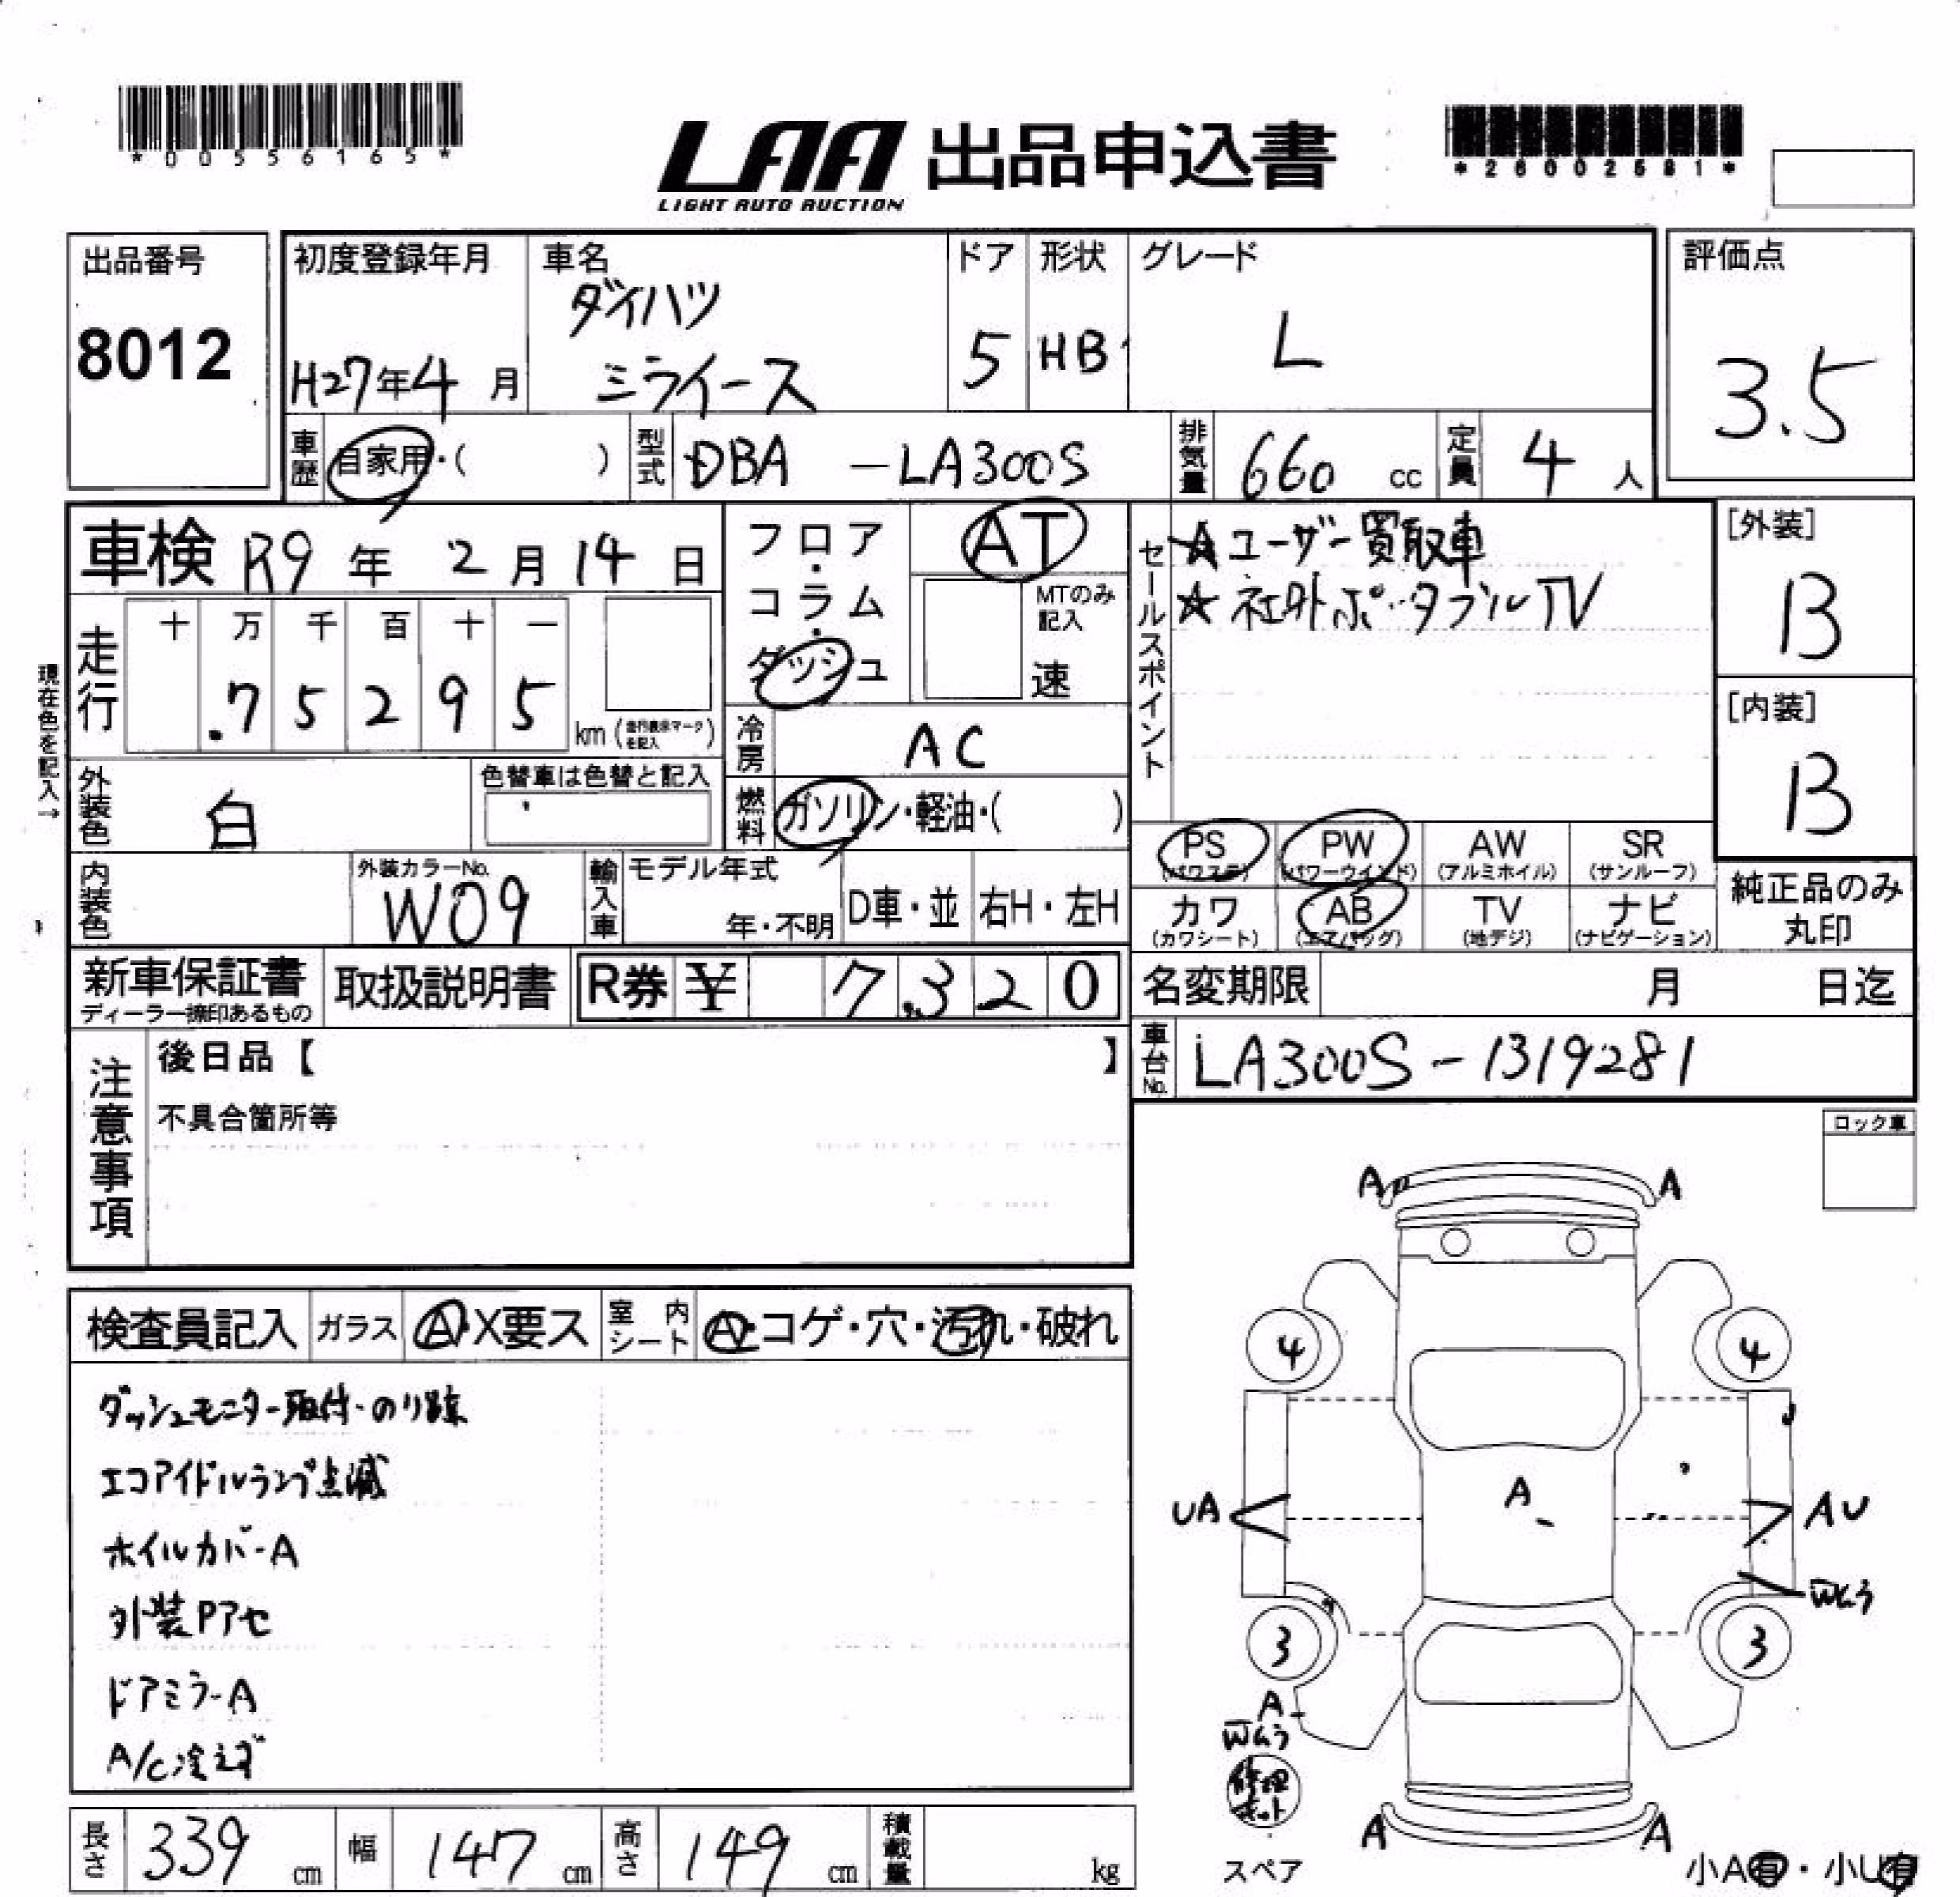 *00556165*
LAA 出品申込書
LIGHT AUTO AUCTION
*26002581*
出品番号
8012
初度登録年月
H27年4月
車名
ダイハツ
ミライース
ドア
5
形状
HB
グレード
L
評価点
3.5
車歴
自家用・( )
型式
DBA -LA300S
排気量
660 cc
定員
4 人
車検 R9年 2月 14日
フロア・コラム・ダッシュ
AT
MTのみ記入
速
セールスポイント
☆ユーザー買取車
☆社外ポータブルTV
[外装]
B
[内装]
B
現在色を記入→
走行
十 万 千 百 十 一
75295
km (走行表示マークを記入)
冷房
AC
外装色
白
色替車は色替と記入
燃料
ガソリン・軽油・( )
PS (パワステ)
PW (パワーウインド)
AW (アルミホイル)
SR (サンルーフ)
カワ (カワシート)
AB (エアバッグ)
TV (地デジ)
ナビ (ナビゲーション)
純正品のみ丸印
内装色
外装カラーNo.
W09
輸入車
モデル年式
年・不明
D車・並
右H・左H
新車保証書
ディーラー捺印あるもの
取扱説明書
R券 ¥ 7,320
名変期限 月 日迄
車台No.
LA300S-1319281
注意事項
後日品【 】
不具合箇所等
ロック車
検査員記入
ガラス
A・X要ス
室内シート
A・コゲ・穴・汚れ・破れ
ダッシュモニター取付・のり跡
エコアイドルランプ点滅
ホイルカバーA
外装Pアセ
ドアミラーA
A/C冷えず
A A
4 4
UA A AU
Wムラ
3 3
A
Wムラ
修理キット
スペア
A A
小A有・小U有
長さ 339 cm
幅 147 cm
高さ 149 cm
積載量 kg